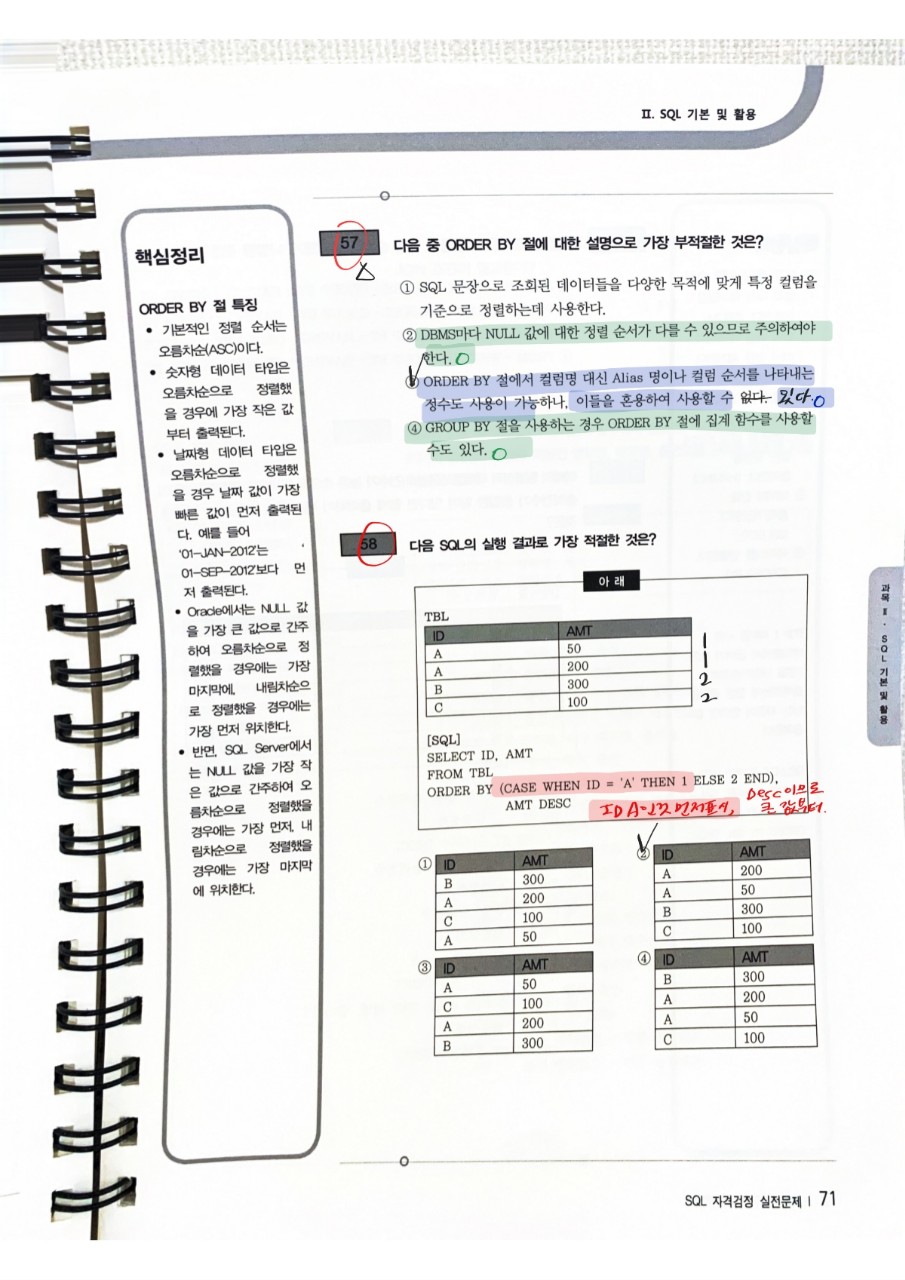 Ⅱ. SQL 기본 및 활용
핵심정리
ORDER BY 절 특징
• 기본적인 정렬 순서는
오름차순(ASC)이다.
• 숫자형 데이터 타입은
오름차순으로 정렬했
을 경우에 가장 작은 값
부터 출력된다.
• 날짜형 데이터 타입은
오름차순으로 정렬했
을 경우 날짜 값이 가장
빠른 값이 먼저 출력된
다. 예를 들어
'01-JAN-2012'는 '
01-SEP-2012'보다 먼
저 출력된다.
• Oracle에서는 NULL 값
을 가장 큰 값으로 간주
하여 오름차순으로 정
렬했을 경우에는 가장
마지막에, 내림차순으
로 정렬했을 경우에는
가장 먼저 위치한다.
• 반면, SQL Server에서
는 NULL 값을 가장 작
은 값으로 간주하여 오
름차순으로 정렬했을
경우에는 가장 먼저, 내
림차순으로 정렬했을
경우에는 가장 마지막
에 위치한다.
57 다음 중 ORDER BY 절에 대한 설명으로 가장 부적절한 것은?
① SQL 문장으로 조회된 데이터들을 다양한 목적에 맞게 특정 컬럼을
기준으로 정렬하는데 사용한다.
② DBMS마다 NULL 값에 대한 정렬 순서가 다를 수 있으므로 주의하여야
한다.
③ ORDER BY 절에서 컬럼명 대신 Alias 명이나 컬럼 순서를 나타내는
정수도 사용이 가능하나, 이들을 혼용하여 사용할 수 없다. 있다.
④ GROUP BY 절을 사용하는 경우 ORDER BY 절에 집계 함수를 사용할
수도 있다.
58 다음 SQL의 실행 결과로 가장 적절한 것은?
아 래
TBL
ID AMT
A 50 1
A 200 1
B 300 2
C 100 2
[SQL]
SELECT ID, AMT
FROM TBL
ORDER BY (CASE WHEN ID = 'A' THEN 1 ELSE 2 END),
AMT DESC
ID A인것 먼저표시,
Desc이므로
큰 값부터.
① ID AMT
B 300
A 200
C 100
A 50
② ID AMT
A 200
A 50
B 300
C 100
③ ID AMT
A 50
C 100
A 200
B 300
④ ID AMT
B 300
A 200
A 50
C 100
과목 Ⅱ · SQL 기본 및 활용
SQL 자격검정 실전문제 | 71